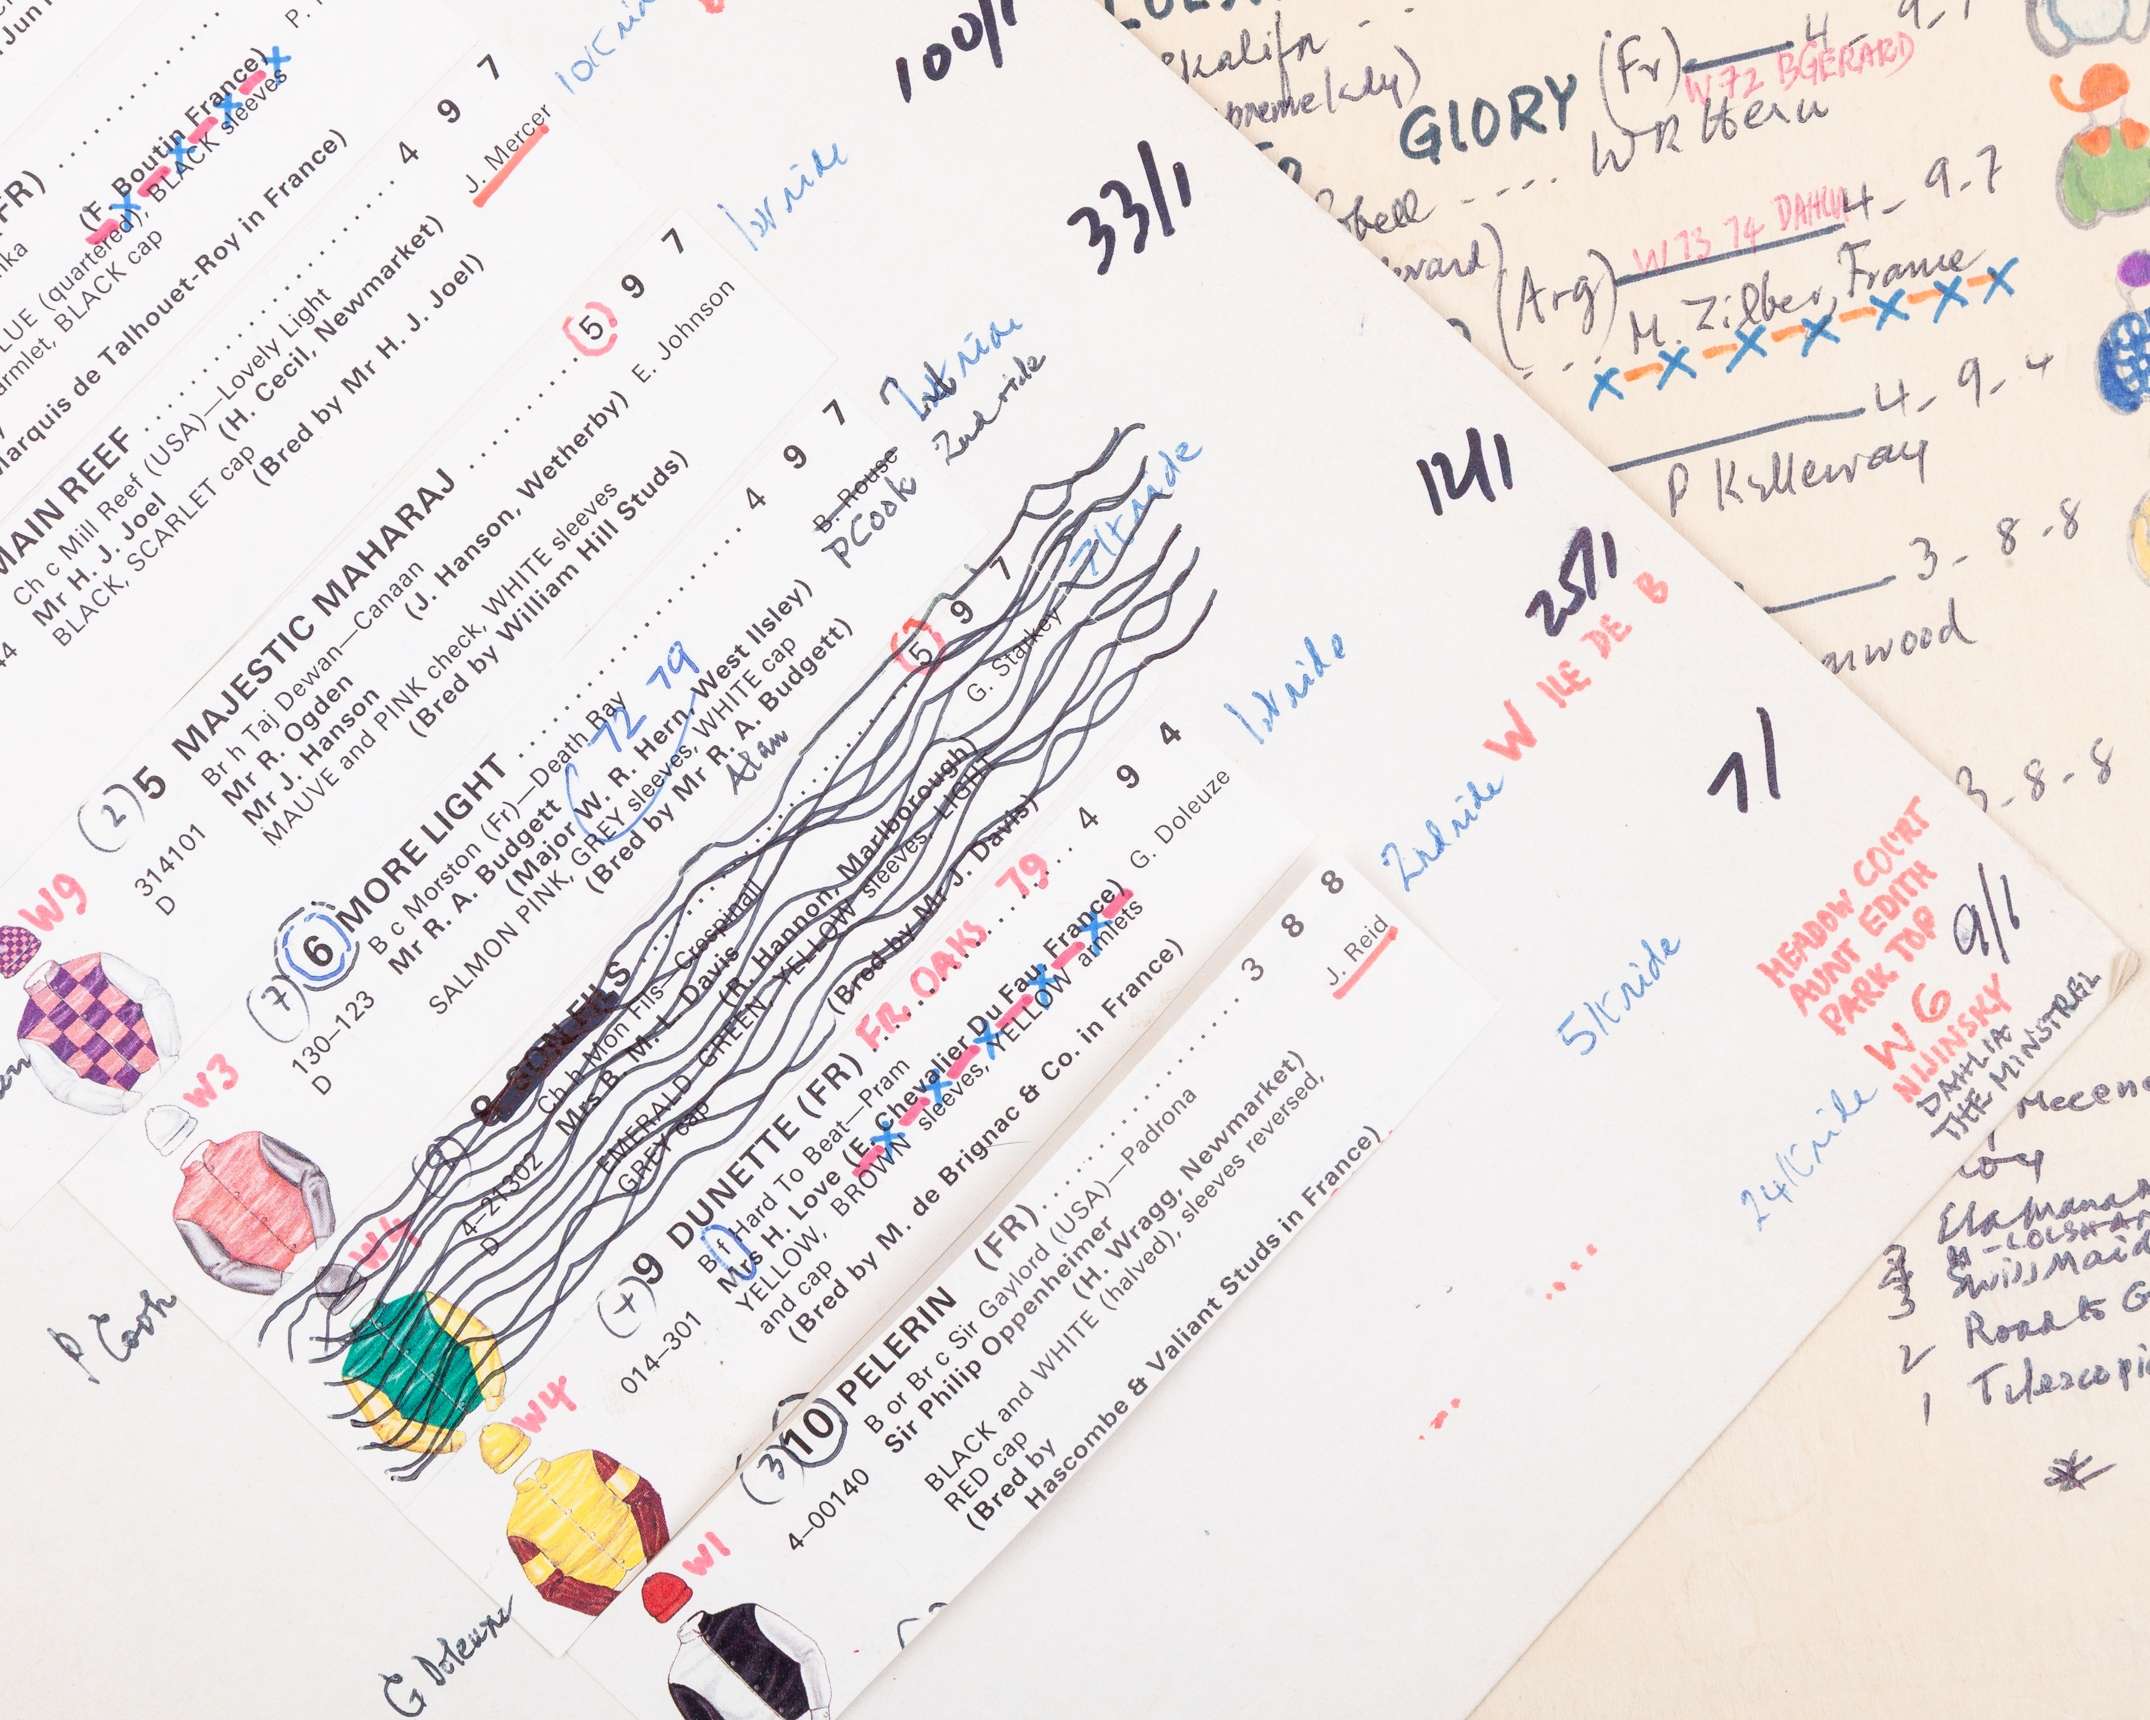 10/K ride
100/1
(F. Boutin France)
BLUE (quartered), BLACK sleeves
armlet, BLACK cap
Marquis de Talhouet-Roy in France)
MAIN REEF .......... 4 9 7
Ch c Mill Reef (USA)—Lovely Light
Mr H. J. Joel (H. Cecil, Newmarket) J. Mercer
BLACK, SCARLET cap
(Bred by Mr H. J. Joel)
1st ride
33/1
(2) 5 MAJESTIC MAHARAJ .......... 5 9 7
314101
D
Br h Taj Dewan—Canaan
Mr R. Ogden
Mr J. Hanson (J. Hanson, Wetherby) E. Johnson
MAUVE and PINK check, WHITE sleeves
(Bred by William Hill Studs)
W9
2nd ride
12/1
(7) 6 MORE LIGHT .......... 4 9 7
130–123
D
B c Morston (Fr)—Death Ray
72 79
Mr R. A. Budgett
(Major W. R. Hern, West Ilsley) B. Rouse
P Cook
SALMON PINK, GREY sleeves, WHITE cap
(Bred by Mr R. A. Budgett)
W3
P Cook
7/K ride
25/1
8 SONFILS .......... 5 9 7
4–21302
D
Ch h Mon Fils—Crespinall
Mrs B. M. L. Davis
(R. Hannon, Marlborough) G. Starkey
EMERALD GREEN, YELLOW sleeves, LIGHT
GREY cap
(Bred by Mr J. Davis)
W4
1st ride
W ILE DE B
7/1
FR. OAKS 79
(4) 9 DUNETTE (FR) .......... 4 9 4
014–301
B f Hard To Beat—Pram
Mrs H. Love (E. Chevalier Du Fau, France) G. Doleuze
YELLOW, BROWN sleeves, YELLOW armlets
and cap
(Bred by M. de Brignac & Co. in France)
W4
G Doleuze
2nd ride
9/1
(3) 10 PELERIN (FR) .......... 3 8 8
4–00140
B or Br c Sir Gaylord (USA)—Padrona
Sir Philip Oppenheimer
(H. Wragg, Newmarket) J. Reid
BLACK and WHITE (halved), sleeves reversed,
RED cap
(Bred by
Hascombe & Valiant Studs in France)
W1
5/K ride
MEADOW COURT
AUNT EDITH
PARK TOP
W 6
NIJINSKY
DAHLIA
THE MINSTREL
24/K ride
GLORY (Fr) 4 - 9-7
W72 BGERARD
W R Hern
W 73 74 DAHLIA
(Arg) 4 - 9-7
M. Zilber, France
4 - 9 - 4
P Kelleway
3 - 8 - 8
3 - 8 - 8
Swiss Maid
3 Road to G
2 Telescopi
1